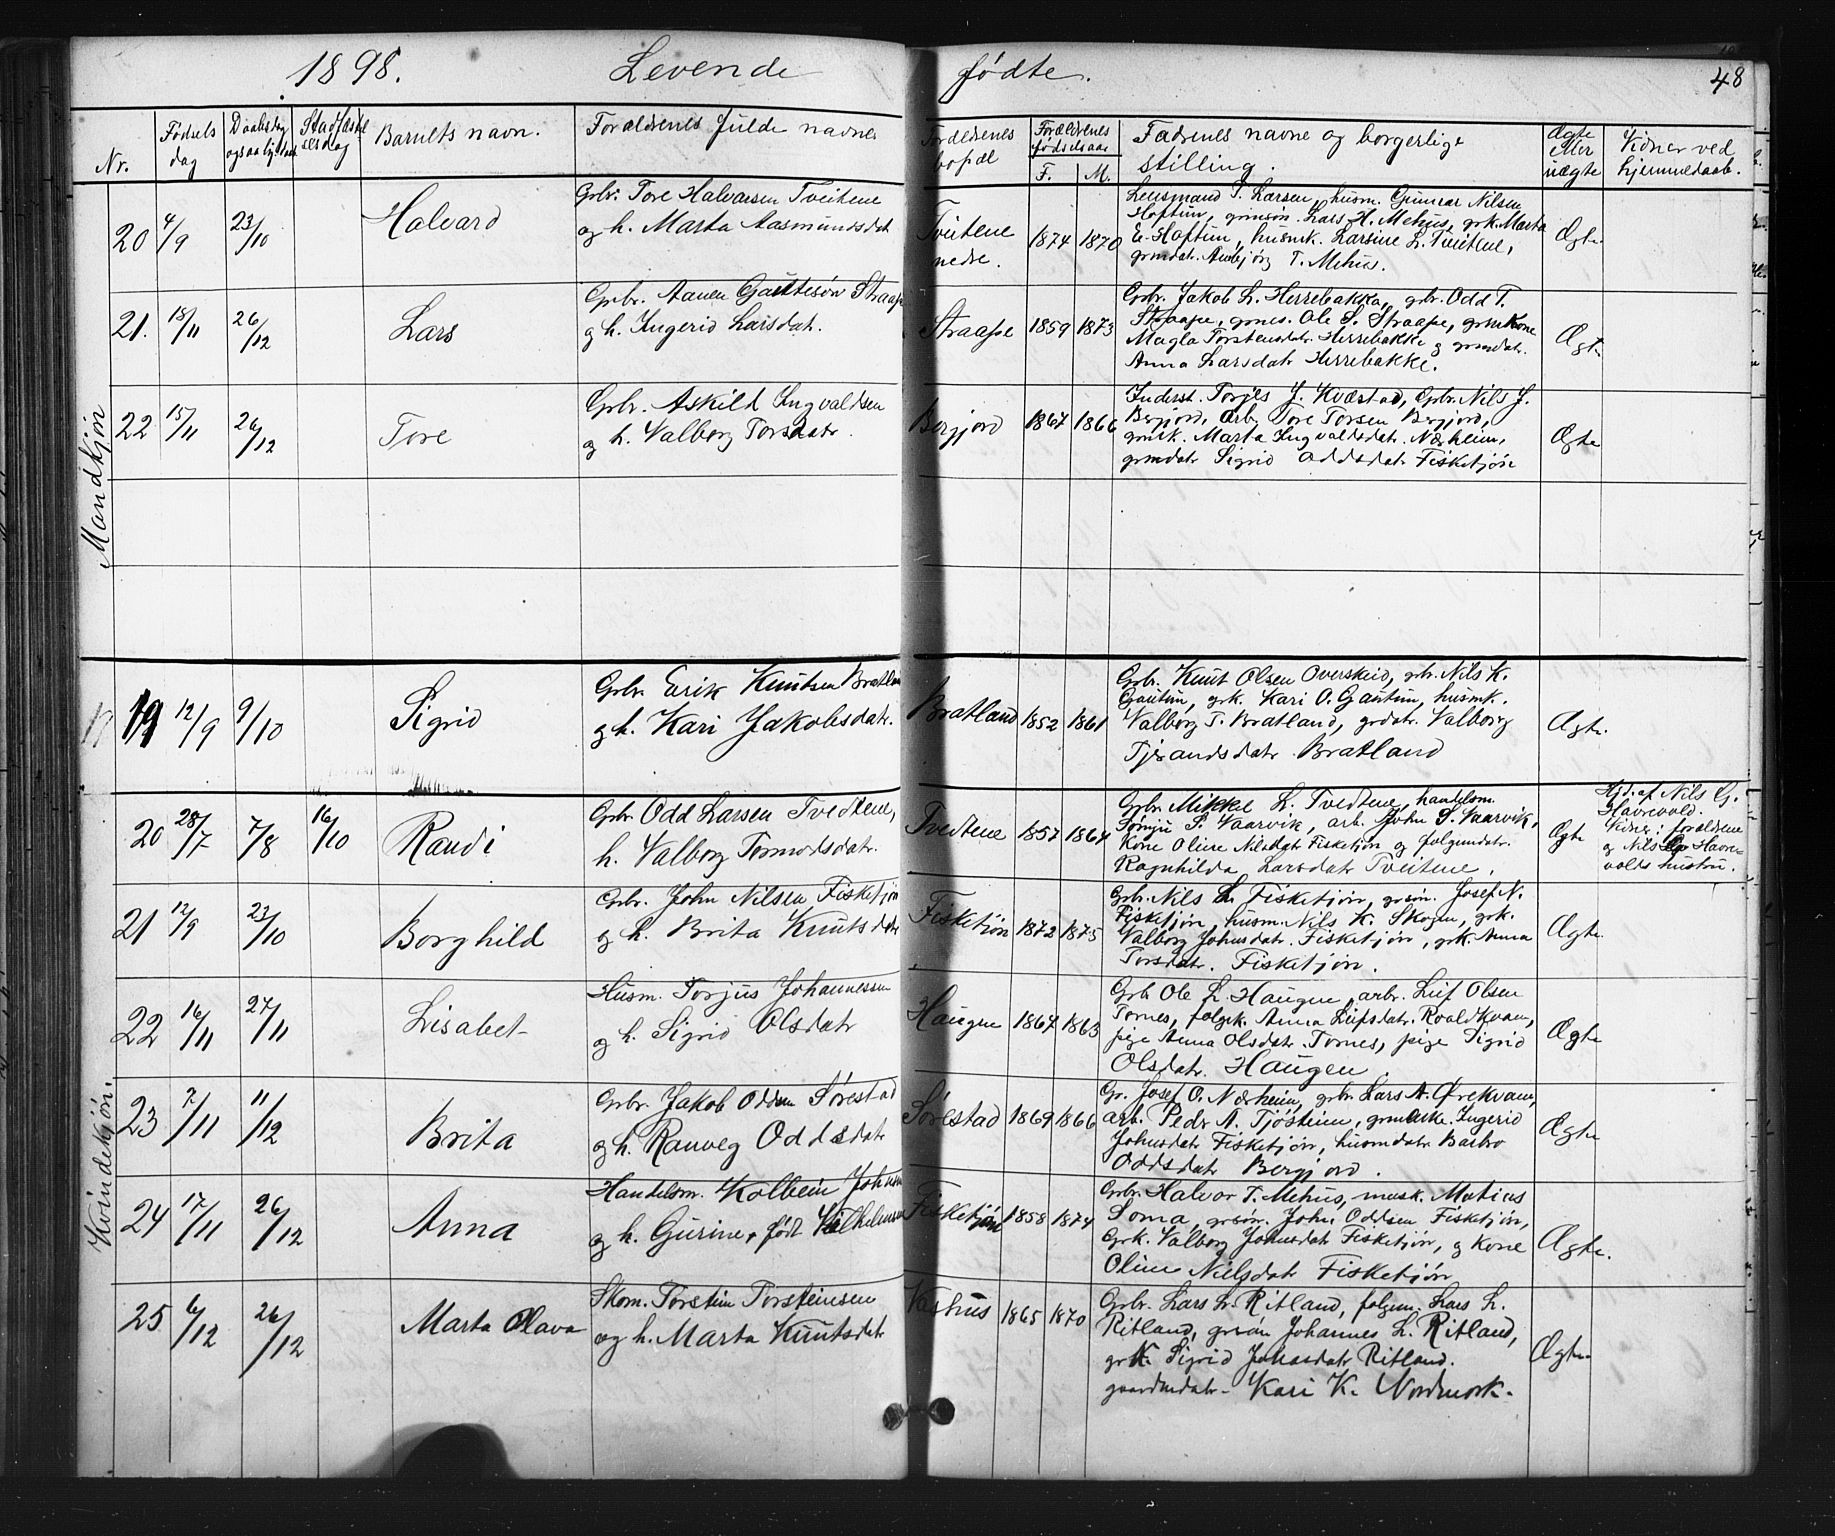 1898. Levende fødte. 48
Nr.
Fødsels dag
Daabsdag
Stadfæstelsesdag
Barnets navn.
Forældrenes fulde navne
Forældrenes bopæl
Forældrenes fødselsaar
F. M.
Fadrenes navne og borgerlige stilling.
Ægte eller uægte
Vidner ved hjemmedaab.
Mandkjøn
20 4/9 23/10 Halvard
Grbr. Tore Halvarsen Tveitene
og h. Marta Aasmundsdat
Tveitene nedre. 1874 1870
Lensmand T. Larsen, husm. Gunnar Nilsen
Hoftun, grmsøn. Lars H. Mehus, grk. Marta
E. Hoftun, husmk. Larsine L. Tveitene,
grmdatr. Anbjørg T. Mehus.
Ægte.
21. 18/11 26/12 Lars
Grbr. Aanen Gauttesøn Straape
og h. Ingerid Larsdatr.
Straape 1859 1873
Grbr. Jakob L. Herrebakka, grbr. Odd T.
Straape, grmss. Ole S. Straape, grmkone
Magla Torstensdatr. Herrebakke og grmdatr.
Anna Larsdatr Herrebakke.
Ægte
22 15/11 26/12 Tore
Grbr. Askild Ingvaldsen
og h. Valborg Torsdatr.
Bergjord 1867 1866
Inderst. Torjes J. Kvæstad, Grbr. Nils J.
Bergjord, arb. Tore Torsen Bergjord,
grmk. Marta Ingvaldsdatr. Nærheim,
grmdatr Sigrid Oddsdatr. Fisketjøn
Ægte
Kvindekjøn.
19 12/9 9/10 Sigrid
Grbr. Eerik Knutsen Bratland
og h. Kari Jakobsdatr.
Bratland 1852 1861
Grbr. Knut Olsen Overskeid, grbr. Nils K.
Gautun, grk. Kari O. Gautun, husmk.
Valborg T. Bratland, grdatr. Valborg
Tjerandsdatr Bratland
Ægte.
20 28/7 7/8 16/10 Randi
Grbr Odd Larsen Tvedtene,
h. Valborg Tormodsdatr.
Tvedtene 1857 1864
Grbr. Mikkel L. Tvedtene, handelsm.
Tømju S. Vaarvik, arb. John S. Vaarvik,
Kone Oline Nilsdatr Fisketjøn og folgemdatr.
Ragnhilda Larsdatr Tveitene.
Ægte
Hjd. af Nils G.
Havrevold.
Vidner: forældrene
og Nils G. Havre-
volds hustru.
21 12/9 23/10 Borghild
Grbr. John Nilsen Fisketjøn
og h. Brita Knutsdatr
Fisketjøn 1872 1875
Grbr. Nils L. Fisketjøn, grsøn. Josef N.
Fisketjøn, husm. Nils K. Skogen, grk.
Valborg Johnsdatr. Fisketjøn, grk. Anna
Torsdatr. Fisketjøn.
Ægte.
22 16/11 27/11 Lisabet
Husm. Torjus Johannessen
og h. Sigrid Olsdatr
Haugen 1867 1863
Grbr Ole L. Haugen, arbr. Leif Olsen
Tornes, folgek. Anna Leifsdatr. Roaldkvam,
pige Anna Olsdatr. Tornes, pige Sigrid
Olsdatr. Haugen.
Ægte
23 2/11 11/12 Brita
Grbr. Jakob Oddsen Sørestad
og h. Ranveg Oddsdatr
Sørestad 1869 1866
Gr. Josef O. Nærheim, grbr. Lars A. Ørekvam,
arb. Peder A. Tjøsheim, grmaske. Ingerid
Johnsdatr Fisketjøn, husmdatr Barbro
Oddsdatr Bergjord.
Ægte
24 17/11 26/12 Anna
Handelsm. Kolbein Johnsen
og h. Gurine, født Vilhelmsen
Fisketjøn 1858 1874
Grbr. Halvor T. Mehus, musk. Matias
Soma, grsøn. John Oddsen Fisketjøn,
Grk. Valborg Johnsdatr Fisketjøn, og Kone
Oline Nielsdatr Fisketjøn
Ægte.
25 6/12 26/12 Marta Olava
Skom. Torstein Torsteinsen
og h. Marta Knutsdatr
Vashus 1865 1870
Grbr. Lars L. Ritland, folgem. Lars L.
Ritland, grsøn Johannes L. Ritland,
grk. Sigrid Johnsdatr Ritland.
gaardmdatr- Kari K. Nordmork.
Ægte.